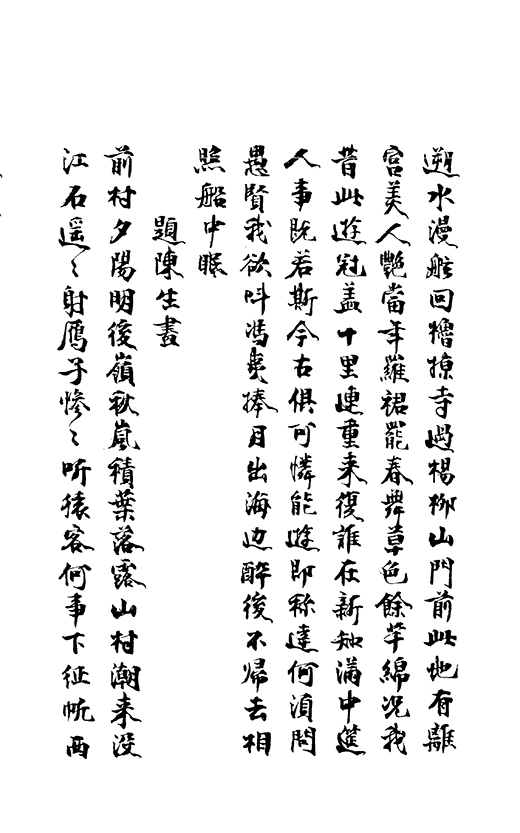 遡水漫艤回櫓掠寺過楊柳山門前此地有離
宮美人艷當年羅裙罷春舞草色餘芊綿况我
昔此遊冠盖十里連重来復誰在新知滿中筵
人事既若斯今古俱可憐能遊即称達何須問
愚賢我欲呌馮夷捧月出海边醉後不歸去相
照船中眠
題陳生畫
前村夕陽明後嶺秋嵐積葉落露山村潮来没
江石遥〻射鴈子慘〻听猿客何事下征帆西